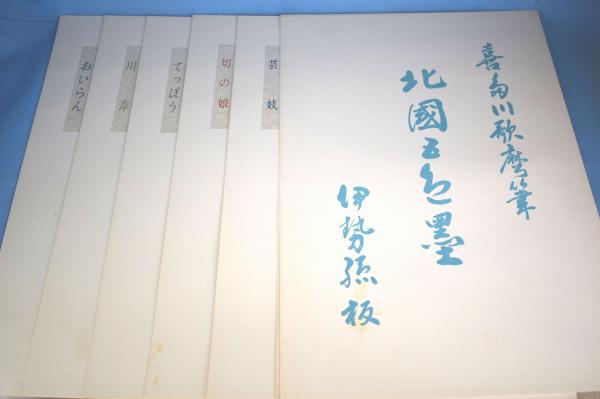 喜多川歌麿筆
北國五色墨
伊勢孫板
芸妓
切の娘
てっぽう
川岸
おいらん